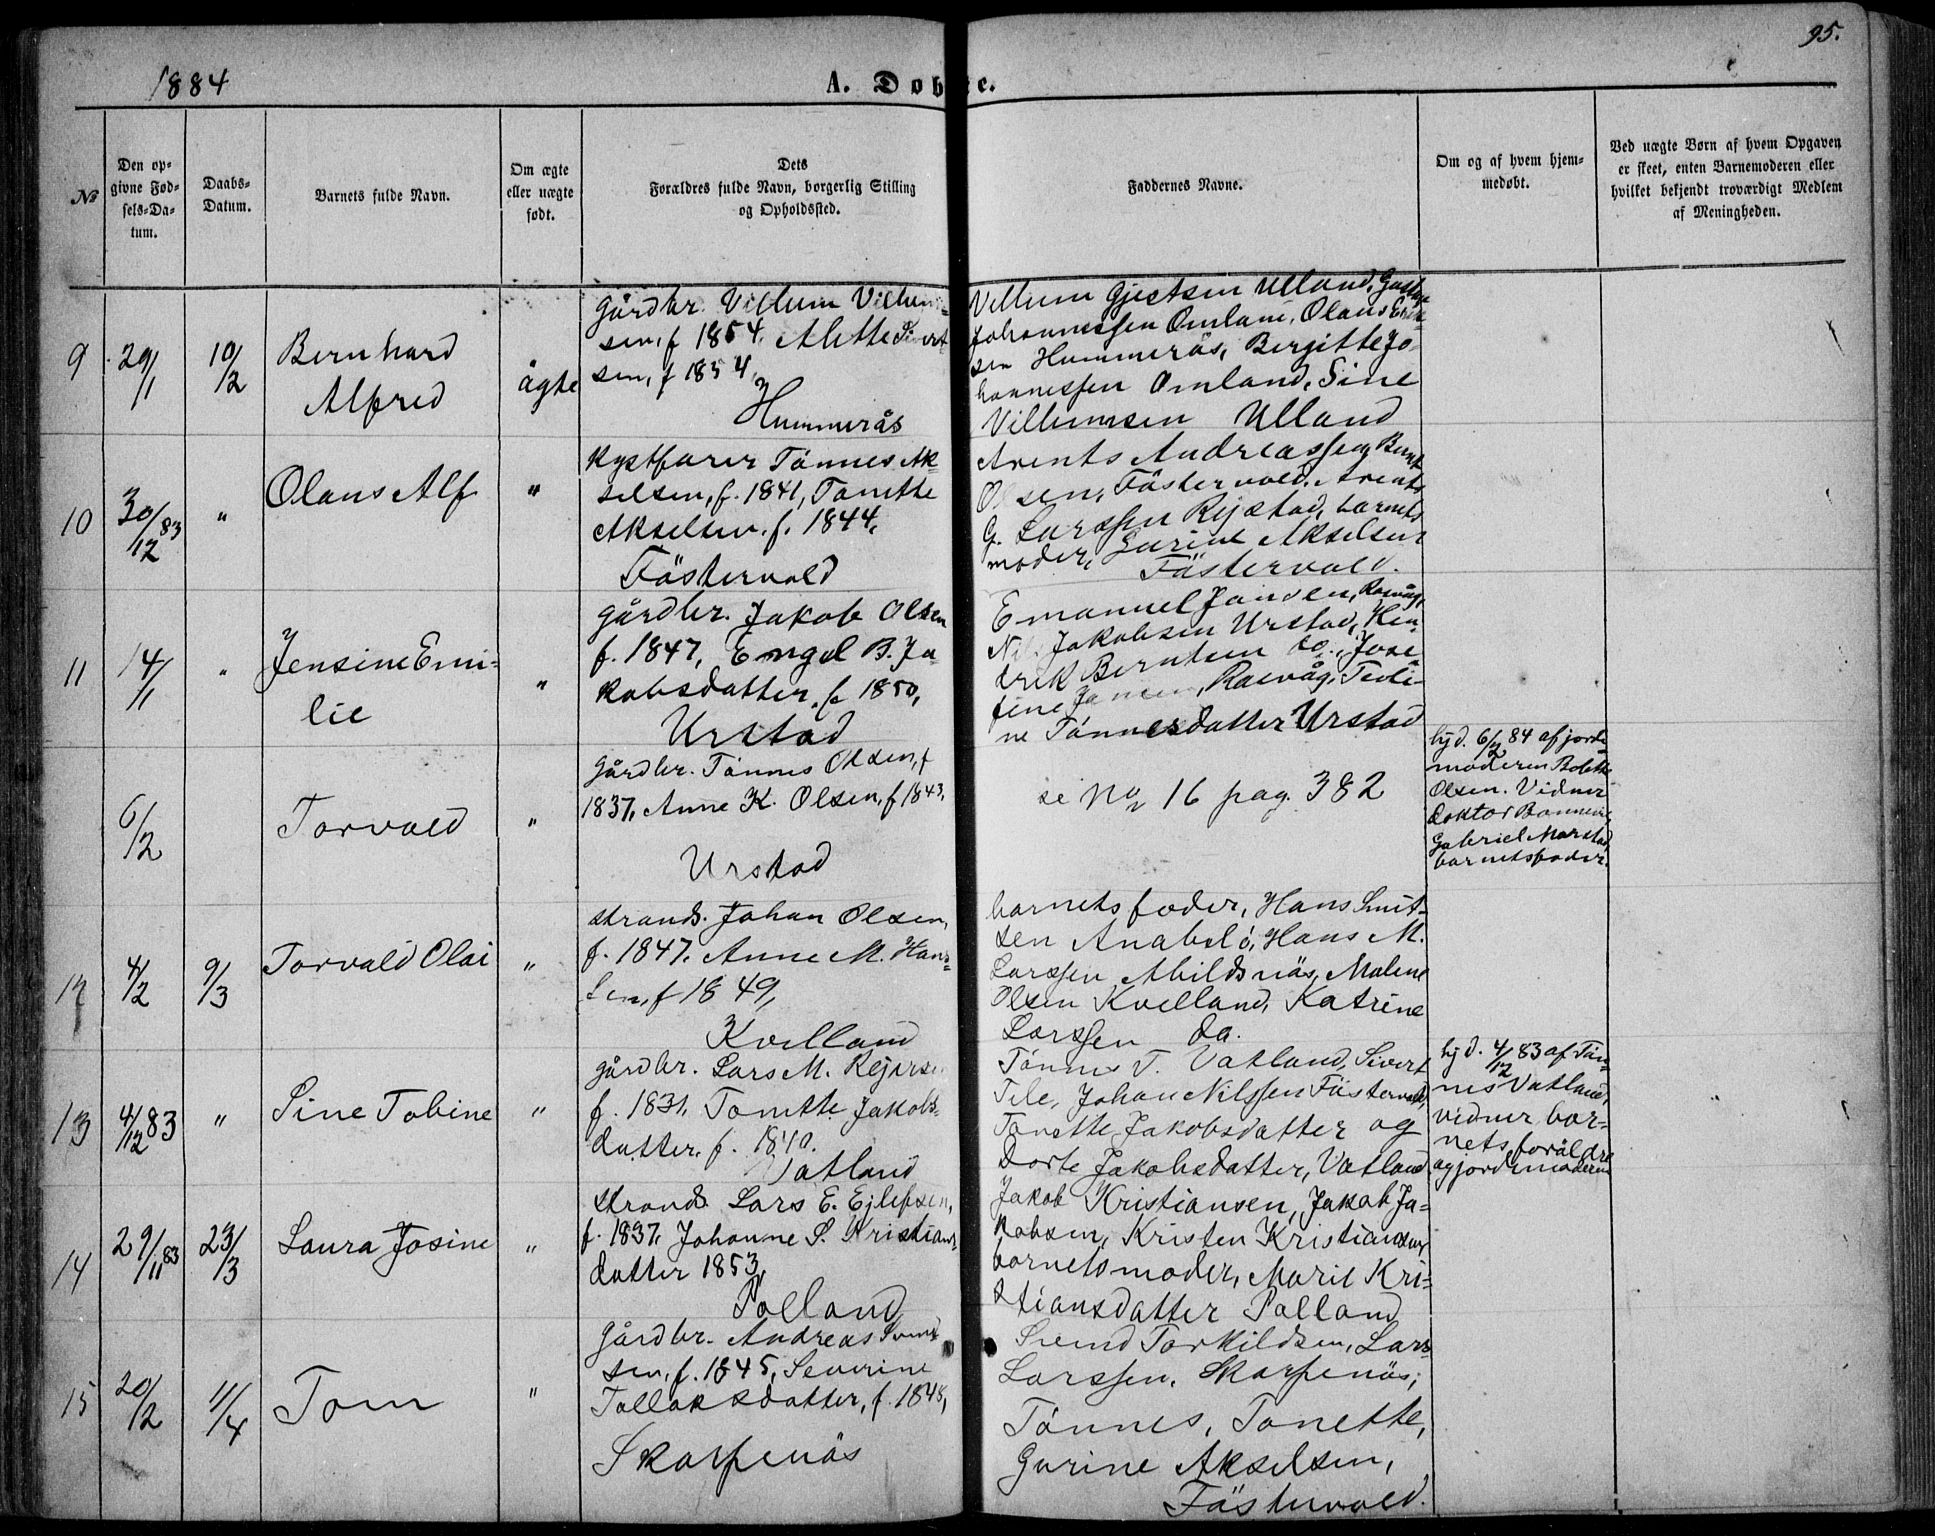 95.
1884
A. Døbte.
№
Den op-
givne Fød-
sels-Da-
tum.
Daabs-
Datum.
Barnets fulde Navn.
Om ægte
eller uægte
født.
Dets
Forældres fulde Navn, borgerlig Stilling
og Opholdssted.
Faddernes Navne.
Om og af hvem hjem-
medøbt.
Ved uægte Børn af hvem Opgaven
er skeet, enten Barnemoderen eller
hvilket bekjendt troværdigt Medlem
af Meningheden.
9
29/1
10/2
Bernhard
Alfred
ägte
Gårdbr. Villum Villum-
sen, f 1854, Alette Sivert
sen, f 1854,
Hummerås
Villum Gjertsen Ulland,
Johannessen Omland, Olaus
sen Hummerås, Birgitte Jo-
hannessen Omland, Sine
Villumsen Ulland
10
30/12 83
"
Olaus Alf
"
Kystfarer Tönnes Ak-
selsen, f. 1841, Tonette
Akselsen. f. 1844,
Fästervold
Arents Andreassen, Bernt
Olsen, Fästervold, Arent
G. Larssen Rejstad, barnets
moder, Gurine Akselsen
Fästervold.
11
14/1
"
Jensine Emi-
lie
"
Gårdbr. Jakob Olsen
f. 1847, Engel B. Ja
kobsdatter, f 1850,
Urstad
Emanuel Jansen, Rasvåg,
Jakobsen Urstad, Hen-
drik Berntsen do., Jose-
fine Jansen, Rasvåg,
ne Tönnesdatter Urstad
6/2
Torvald
"
Gårdbr. Tönnes Olsen, f
1837, Anne K. Olsen, f 1843,
Urstad
se No 16 pag. 382
hjd. 6/2 84 af jorde-
moderen Bolette
Olsen. Vidner
doktor
Gabriel
barnets fader.
12
4/2
9/3
Torvald Olai
"
strands. Johan Olsen,
f. 1847. Anne M. Han-
sen, f 1849,
Kvelland
barnets fader, Hans Smit-
sen Anabelö, Hans M.
Larssen Abildsnäs, Malene
Olsen Kvelland, Katrine
Larssen do.
13
4/12 83
"
Sine Tobine
"
gårdbr. Lars M. Rejers
f. 1831, Tonette Jakobs-
datter. f. 1840.
Vatland
Tönnes T. Vatland, Sivert
Tele, Johan Nilssen Fästervold,
Tonette Jakobsdatter og
Dorte Jakobsdatter, Vatland
hjd. 4/12 83 af Tön-
nes Vatland,
vidner bar-
nets foräldre
og jordemoderen
14
29/11 83
23/3
Laura Josine
"
strands. Lars E. Ejlefsen,
f. 1837, Johanne S. Kristians-
datter 1853,
Polland
Jakob Kristiansen, Jakob Ja-
kobsen, Kristen Kristiansen
barnets moder, Marie Kri-
stiansdatter Polland
15
20/2
11/4
Tom
"
Gårdbr. Andreas Svend
sen, f. 1845, Severine
Tollaksdatter, f. 1848,
Skarpenäs
Svend Torkildsen, Lars
Larssen, Skarpenäs,
Tönnes, Tonette,
Gurine Akselsen,
Fästervold.